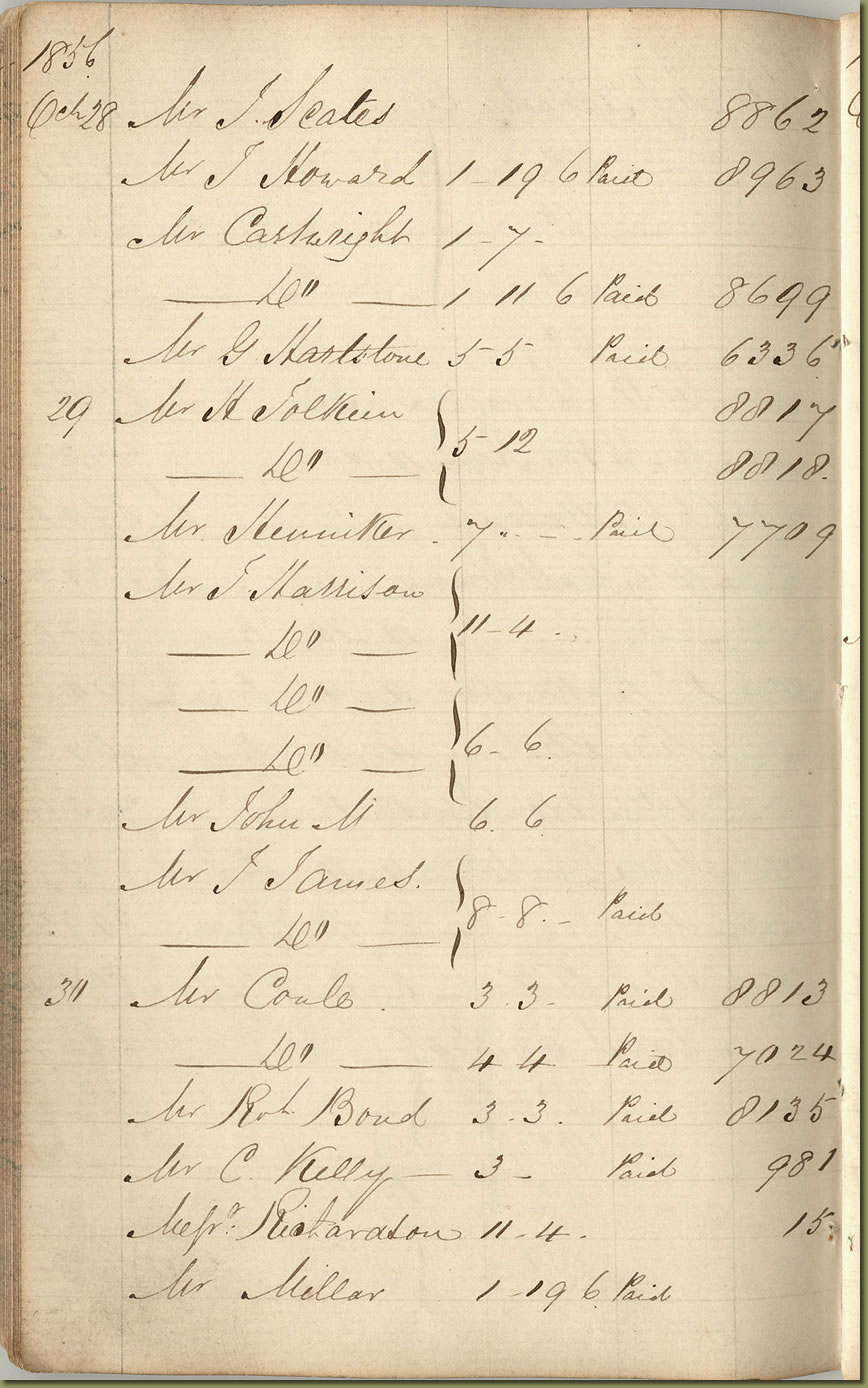 1856
Oct 28 Mr J. Scates 8862
Mr J Howard 1 - 19 6 Paid 8963
Mr Cartwright 1 - 7 -
— Do — 1 11 6 Paid 8699
Mr G Hartstone 5 5 Paid 6336
29 Mr H Tolkien 8817
— Do — 5 12 8818.
Mr Henniker . 7 " - - Paid 7709
Mr T Harrison
— Do — 11 - 4 .
— Do —
— Do — 6 - 6
Mr John M 6. 6
Mr J James.
— Do — 8 - 8. - Paid
30 Mr Coule . 3. 3 - Paid 8813
— Do — 4 4 Paid 7024
Mr Robt Bond 3 - 3 . Paid 8135
Mr C. Kelly — 3 - Paid 981
Messrs Richardson 11 - 4 . 15
Mr Millar 1 - 19 6 Paid